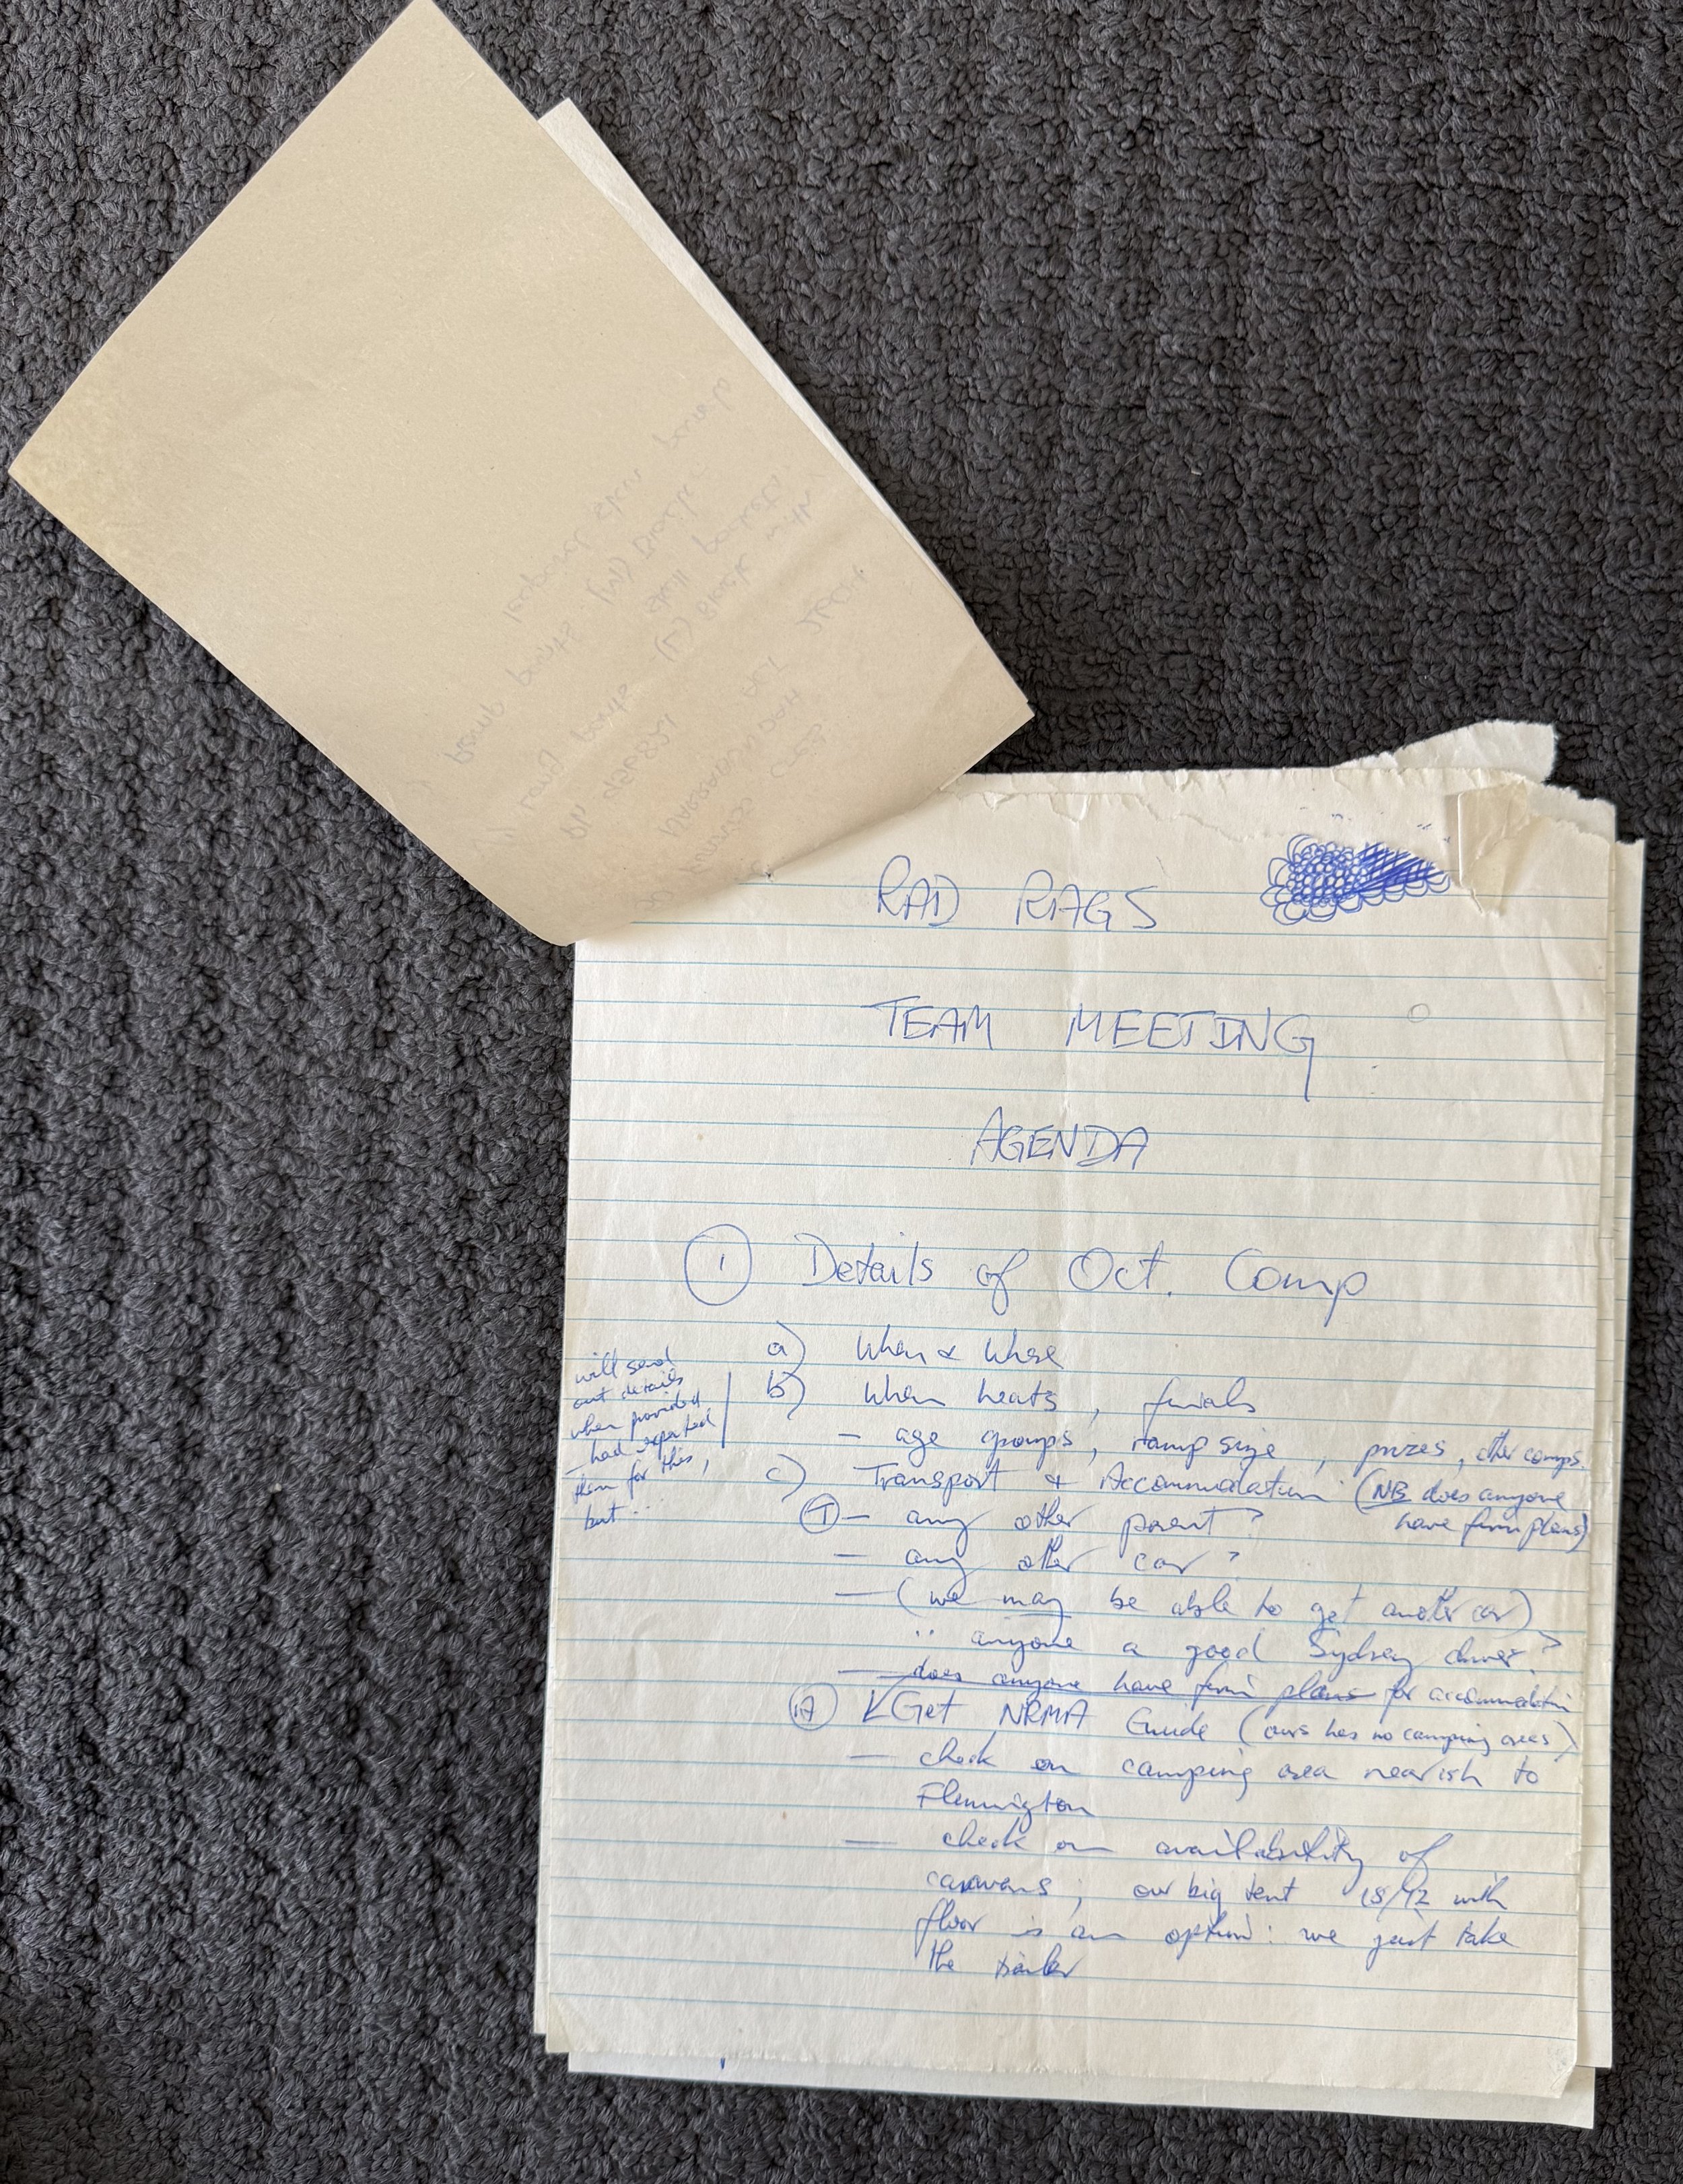 RAD RAGS
TEAM MEETING
AGENDA
① Details of Oct. Comp
a) When & Where
b) When heats, finals
- age groups, ramp size, prizes, other comps.
will send
out details
when provided
- had expected
them for this,
but...
c) Transport & Accommodation (NB does anyone
have firm plans)
Ⓣ - any other parent?
- any other car?
- (we may be able to get another car)
.. anyone a good Sydney driver?
- does anyone have firm plans for accommodation
Ⓐ Get NRMA Guide (ours has no camping areas)
- check on camping area nearish to
Flemington
- check on availability of
caravans; our big tent 15/12 with
floor is an option: we just take
the trailer
hemp pants (M) Black
leopard skin
long pants - (L) Black with
pockets
Ph
NARRABUNDAH ACT